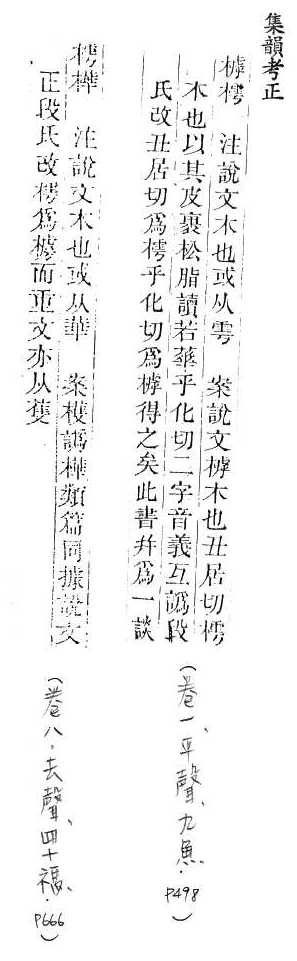 集韻考正
樗樗 注說文木也或从雩 案說文樗木也丑居切樗
木也以其皮裹松脂讀若華乎化切二字音義互譌段
氏改丑居切爲樗乎化切爲樗得之矣此書幷爲一談
(卷一、平聲、九魚. P498)
樗樺 注說文木也或从華 案檴譌樺類篇同據說文
正段氏改樗爲檴而重文亦从蒦
(卷八.去聲、四十禡. P666)